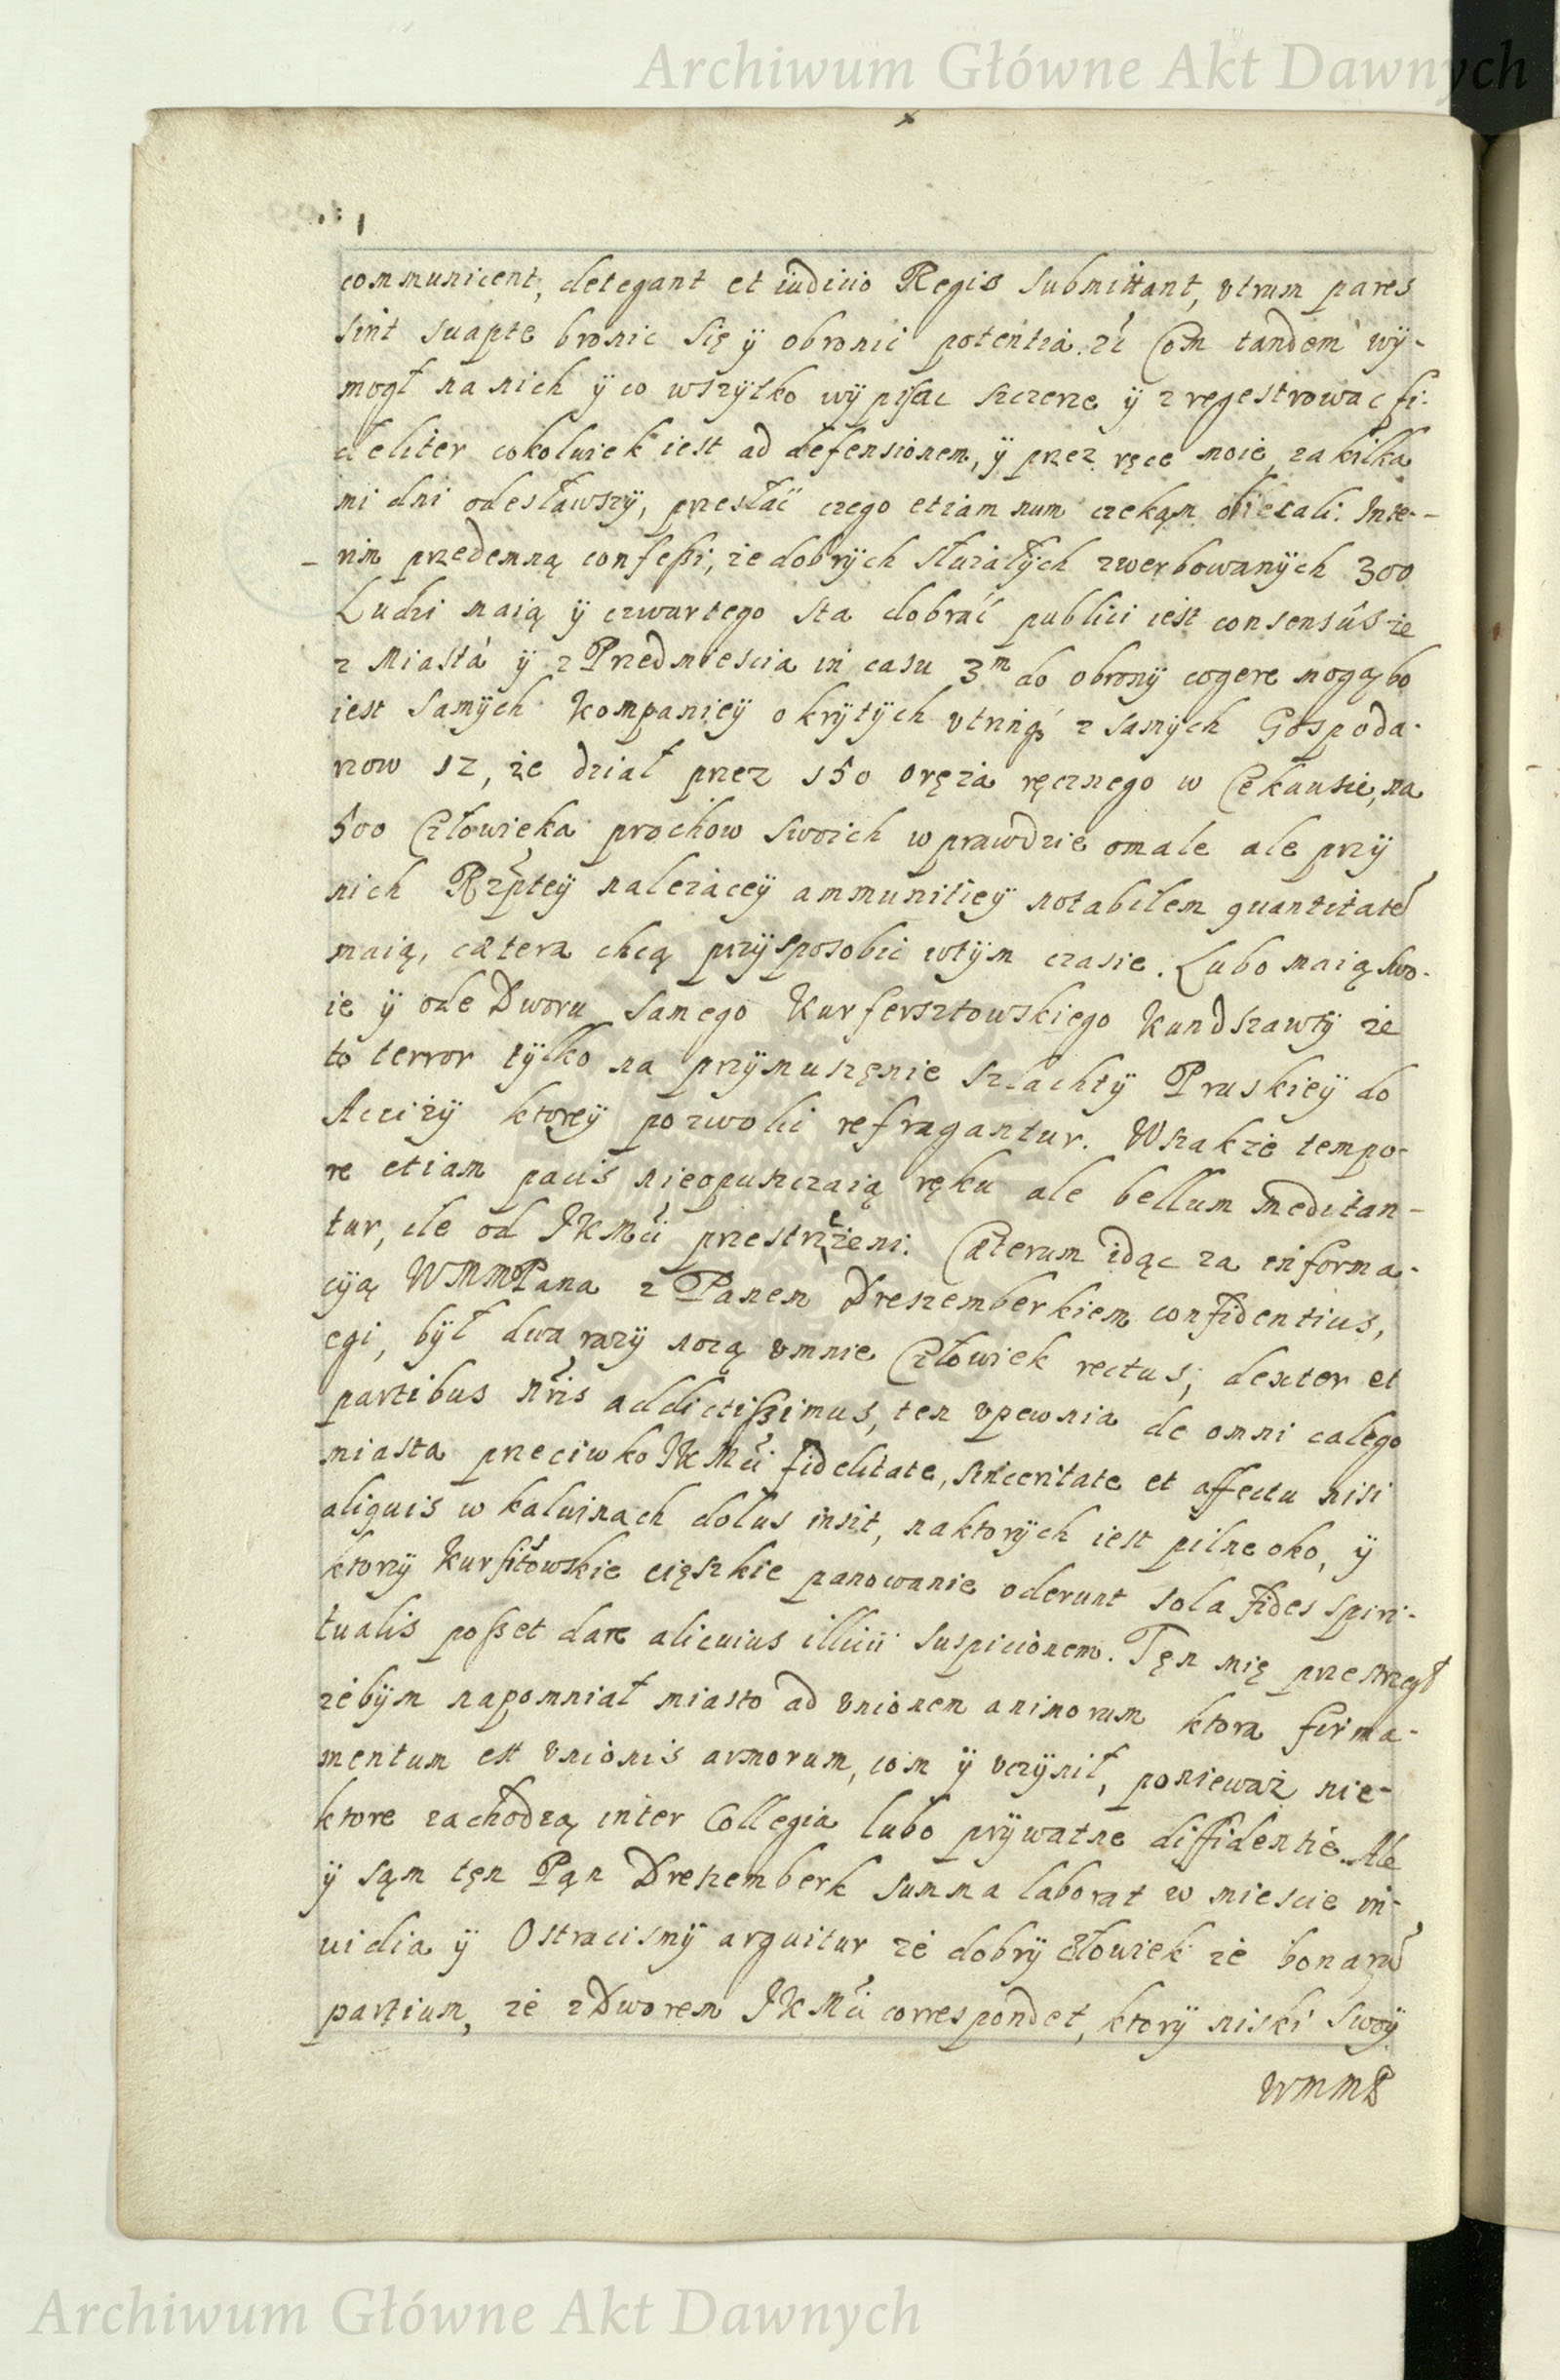 Archiwum Główne Akt Dawnych
communicent, detegant et iudicio Regis submittant, vtrum pares
sint suapte bronic się ÿ obronic potentia. Com tandem wÿ-
mogł na nich ÿ co wszÿtko wÿpisac szczerze ÿ zregestrowac fi-
deliter cokolwiek iest ad defensionem, ÿ przez ręce moie, za kilka
mi dni odesławszÿ, przesłac czego etiam num czekąm obiecali. Inte-
rim przedemną confessi, że dobrÿch służałÿch zwerbowanÿch 300
Ludzi maią ÿ czwartego sta dobrać publici iest consensus że
z Miasta ÿ z Przedmiescia in casu 3m do obronÿ cogere mogą bo
iest samÿch Kompanieÿ okrÿtÿch vtrinq z samÿch Gospoda-
rzow 12, że dział przez 150 oręża ręcznego w Cekausie, na
500 Człowieka prochow swoich wprawdzie omale ale przÿ
nich Rzpteÿ należaceÿ ammunitieÿ notabilem quantitatē
maią, cætera chcą przÿsposobic wtÿm czasie. Lubo maią swo-
ie ÿ ode Dworu samego Kurfersztowskiego Kundszawtÿ że
to terror tÿlko na przÿmuszęnie szlachtÿ Pruskieÿ do
Accizÿ ktoreÿ pozwolic refragantur. Wszakże tempo-
re etiam pacis nieopuszczaią ręku ale bellum meditan-
tur, ile od JKMci przestrzeżeni. Cæterum idąc za informa-
cÿą WMMPana z Panem Dreszemberkiem confidentius,
egi, bÿł dwa razÿ nocą vmnie Człowiek rectus, dexter et
partibus nris addictissimus, ten vpewnia de omni całego
miasta przeciwko JKMci fidelitate, sinceritate et affectu nisi
aliquis w kalwinach dolus insit, naktorÿch iest pilne oko, ÿ
ktorzÿ Kurfsztowskie cięszkie panowanie oderunt sola fides spiri-
tualis posset dare alicuius illicii suspicionem. Tęn mię przestrzegł
żebÿm napomniał miasto ad vnionem animorum ktora firma-
mentum est vnionis armorum, com ÿ vczÿnił, ponieważ nie-
ktore zachodzą inter Collegia lubo prÿwatne diffidentie. Ale
ÿ sąm tęn Pąn Dreszemberk summa laborat w miescie in-
uidia ÿ Ostracismÿ arguitur że dobrÿ człowiek że bonarū
partium, że z Dworem JKMci correspondet, ktorÿ niski swoÿ
WMMP
Archiwum Główne Akt Dawnych